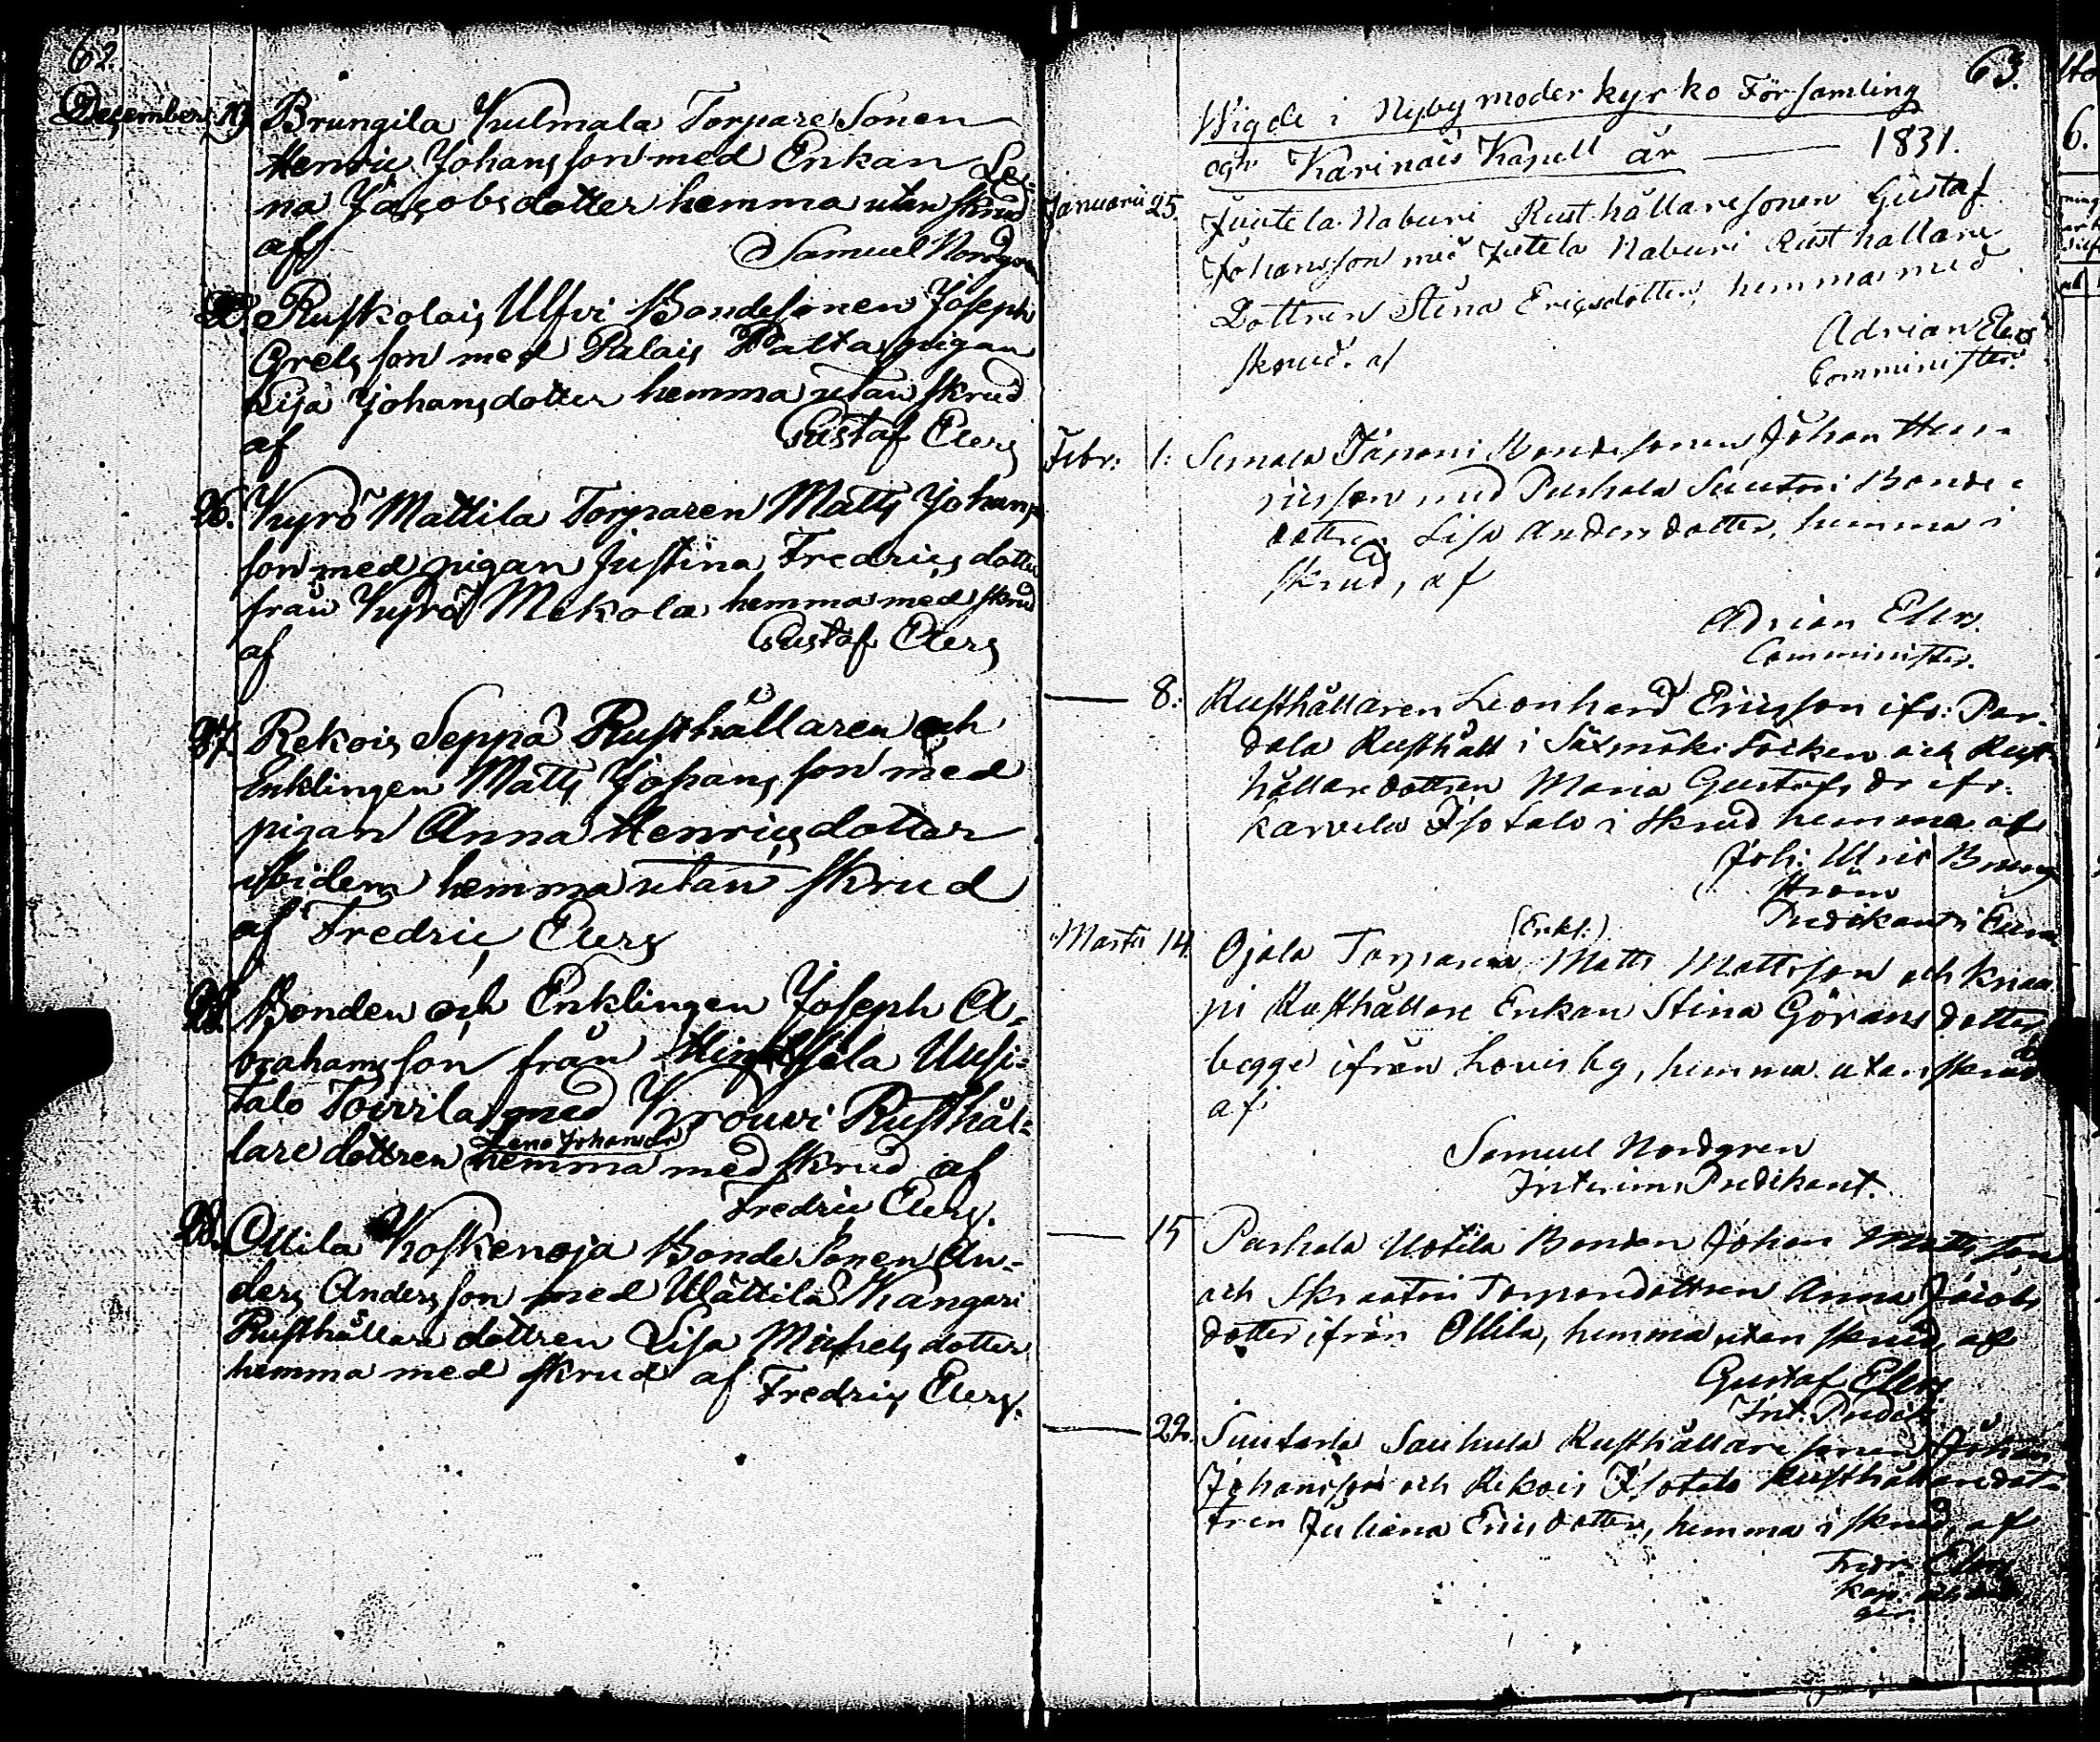 62.
December 19. Brungila Kulmala Torpare Sonen
Henric Johansson med Enkan Le-
na Jacobsdotter hemma utan skrud
af Samuel Nordgren
Ruskolais Ulfvi Bondesonen Joseph
Grelsson med Palais Patta pigan
Lisa Johansdotter hemma utan skrud
af Gustaf Elers
26. Kyrö Mattila Torparen Matts Johans-
son med pigan Justina Fredricsdotter
från Kyrö Mekola hemma med skrud
af Gustaf Elers
27. Rekois Seppä Rusthållaren och
Enklingen Matts Johansson med
pigan Anna Henricsdotter
ibidem hemma utan skrud
af Fredric Elers
Bonden och Enklingen Joseph A-
brahamsson från Uusi-
talo med Rusthål-
lare dottren Lena Johansdr hemma med skrud af
Fredric Elers.
28. Ollila Koskenoja Bonde Sonen An-
ders Andersson med Wättilä Kangari
Rusthållare dottren Lisa Michelsdotter
hemma med skrud af Fredric Elers.
63.
Wigde i Nyby moder kyrko Församling
och Karinais Kapell år — 1831.
Januarii 25. Juutela Naburi Rusthållaresonen Gustaf
Johansson med Jutela Naburi Rusthållare
Dottren Stina Ericsdotter, hemma med
skrud. af Adrian Elers
Comminister.
Febr: 1: Bondesonen Johan Hen-
ricsson med Bonde-
dottren Lisa Andersdotter, hemma i
skrud, af
Adrian Elers.
Comminister.
— 8: Rusthållaren Leonhard Ericsson ifr: Par-
dala Rusthåll i Säxmäki Socken och Rust-
hållaredottren Maria Gustafs dr ifr.
Karvela Isotalo i skrud hemma af
Joh: Ulric Berg-
ström
Predikant i Eura
Martii 14. Ojala Torparen (Enkl:) Matts Mattsson och
pi Rusthållare Enkan Stina Görans dotter
begge ifrån Lovisbg, hemma utan skrud
af.
Samuel Nordgren
Interims Predikant.
— 15 Uotila Bonden Johan Mattsson
och Torparedottren Anna Jacobs
dotter ifrån Ollila, hemma utan skrud, af
Gustaf Elers
Int. Predik.
— 22. Rusthållare sonen Johan
Johansson och Rekois Isotalo Rusthållaredot-
tren Juliana Ericsdotter, hemma i skrud, af
Fredr: Elers